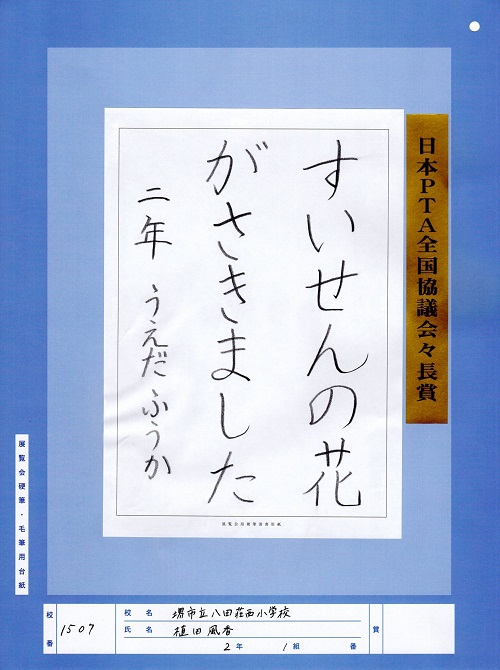 日本PTA全国協議会々長賞
すいせんの花
がさきました
二年 うえだ ふうか
展覧会硬筆・毛筆用台紙
校番 1507
校名 堺市立八田荘西小学校
氏名 植田 風香
2年 1組 番
賞